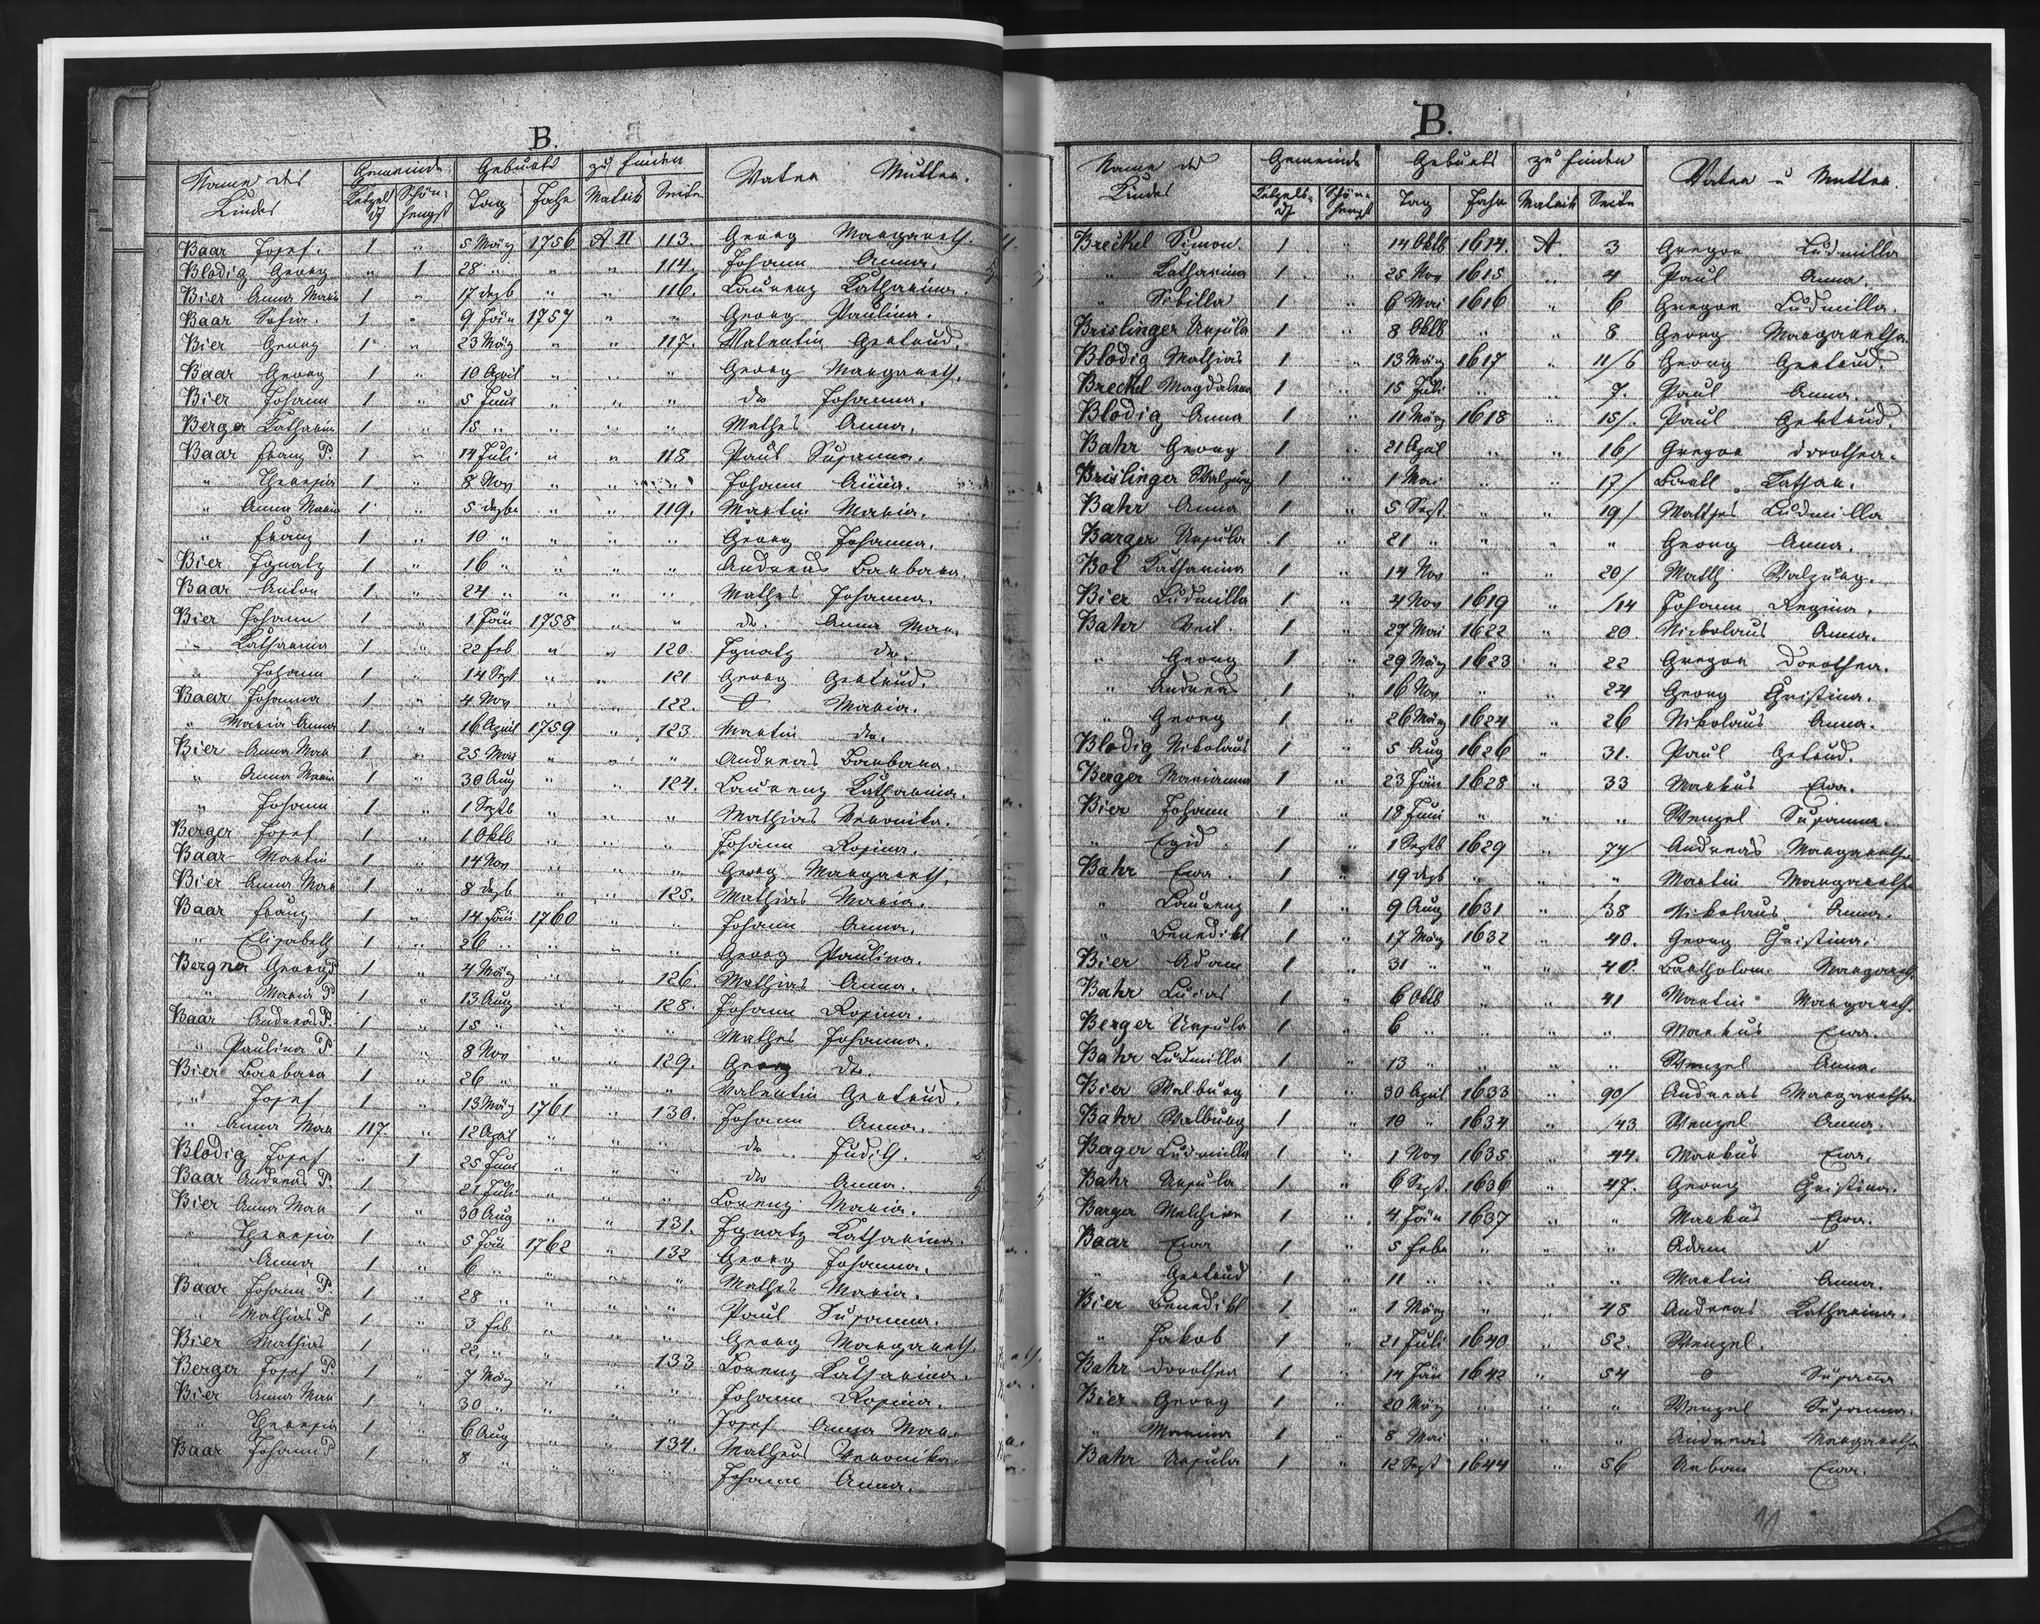 B.
Name des Kindes Gemeinde Geburts zu finden Vater Mutter.
Ketzelsdf Schönhengst Tag Jahr Matrik Seite
Baar Josef. 1 " 5 März 1756 A II 113. Georg Margareth.
Blodig Georg " 1 28 " " " 114. Johann Anna.
Bier Anna Maria 1 " 17 Dezb " " 116. Laurenz Katharina.
Baar Sofia. 1 " 9 Jän 1757 " " Georg Paulina.
Bier Georg 1 " 23 März " " 117. Valentin Gertrud.
Baar Georg 1 " 10 April " " " Georg Margareth.
Bier Johann 1 " 5 Juni " " " do Johanna.
Berger Katharin 1 " 15 " " " " Mathes Anna.
Baar Franz P. 1 " 14 Juli " " 118. Paul Susanna.
" Theresia 1 " 8 Nov " " " Johann Anna.
" Anna Maria 1 " 5 Dezbr " " 119. Martin Maria.
" Franz 1 " 10 " " " " Georg Johanna.
Bier Ignatz 1 " 16 " " " " Andreas Barbara.
Baar Anton 1 " 24 " " " " Mathes Johanna.
Bier Johann 1 " 1 Jän 1758 " " do. Anna Mar.
" Katharina 1 " 22 Feb " " 120. Ignatz do.
" Johann 1 " 14 Sept " " 121 Georg Gertrud.
Baar Johanna 1 " 4 Nov " " 122. O Maria.
" Maria Anna 1 " 16 April 1759 " 123. Martin do.
Bier Anna Mar 1 " 25 Mai " " " Andreas Barbara.
" Anna Maria 1 " 30 Aug " " 124. Laurenz Katharina.
" Johann 1 " 1 Septb " " " Mathias Veronika.
Berger Josef 1 " 1 Oktb " " " Johann Rosina.
Baar Martin 1 " 14 Nov " " " Georg Margareth.
Bier Anna Mar 1 " 8 Dezb " " 125. Mathias Maria.
Baar Franz 1 " 14 Jän 1760 " " Johann Anna.
" Elisabeth 1 " 26 " " " " Georg Paulina.
Bergner Georg P 1 " 4 März " " 126. Mathias Anna.
" Maria P 1 " 13 Aug " " 128. Johann Rosina.
Baar Andreas P. 1 " 15 " " " " Mathes Johanna.
" Paulina P 1 " 8 Nov " " 129. Georg do.
Bier Barbara 1 " 26 " " " " Valentin Gertrud.
" Josef 1 " 13 März 1761 " 130. Johann Anna.
" Anna Mar 117. " 12 April " " " do Judith.
Blodig Josef " 1 25 Juni " " " do Anna.
Baar Andreas P. 1 " 21 Juli " " " Lorenz Maria.
Bier Anna Mar 1 " 30 Aug " " 131. Ignatz Katharina.
" Theresia 1 " 5 Jän 1762 " 132 Georg Johanna.
" Anna 1 " 6 " " " " Mathes Maria.
Baar Johann P. 1 " 28 " " " " Paul Susanna.
" Mathias P 1 " 3 Feb " " " Georg Margareth.
Bier Mathias 1 " 22 " " " 133 Lorenz Katharina.
Berger Josef P. 1 " 7 März " " " Johann Rosina.
Bier Anna Mar 1 " 30 " " " " Josef Anna Mar.
" Theresia 1 " 6 Aug " " 134. Matheus Veronika.
Baar Johann P 1 " 8 " " " " Johann Anna.
B.
Name des Kindes Gemeinde Geburts zu finden Vater u Mutter.
Ketzelsdf Schönhengst Tag Jahr Matrik Seite
Breckel Simon 1 " 14 Oktb 1614. A. 3 Gregor Ludmilla
" Katharina 1 " 25 Nov 1615 " 4 Paul Anna.
" Sibilla 1 " 6 Mai 1616 " 6 Gregor Ludmilla.
Brislinger Ursula 1 " 8 Oktb " " 8 Georg Margaretha
Blodig Mathias 1 " 13 März 1617 " 11/6 Georg Gertrud.
Breckel Magdalena 1 " 15 Juli " " 7. Paul Anna.
Blodig Anna 1 " 11 März 1618 " 15/. Paul Gertrud.
Bahr Georg 1 " 21 April " " 16/ Gregor Dorothea.
Brislinger Walpurg 1 " 1 Mai " " 17/ Bartl. Kathar.
Bahr Anna 1 " 5 Sept. " " 19/ Mathes Ludmilla
Barger Ursula 1 " 21 " " " " Georg Anna.
Bol Katharina 1 " 14 Nov " " 20/ Math Walpurg.
Bier Ludmilla 1 " 4 Nov 1619 " /14 Johann Regina.
Bahr Veit 1 " 27 Mai 1622 " 20. Nickolaus Anna.
" Georg 1 " 29 März 1623 " 22 Gregor Dorothea.
" Andreas 1 " 16 Nov " " 24 Georg Christina.
" Georg 1 " 26 März 1624 " 26 Nikolaus Anna.
Blodig Nikolaus 1 " 5 Aug 1626 " 31. Paul Getrud.
Berger Marianna 1 " 23 Jän 1628 " 33 Markus Eva.
Bier Johann 1 " 18 Juni " " " Wenzel Susanna
" Egid 1 " 1 Septb 1629 " 74/ Andreas Margaretha
Bahr Eva. 1 " 19 Dezb " " " Martin Margaretha
" Laurenz 1 " 9 Aug 1631 " /38 Nikolaus Anna.
" Benedikt 1 " 17 März 1632 " 40. Georg Christina.
Bier Adam 1 " 31 " " " 40. Bartholom. Margareth.
Bahr Lucas 1 " 6 Oktb " " 41 Martin Margareth.
Berger Ursula 1 " 6 " " " " Markus Eva.
Bahr Ludmilla 1 " 13 " " " " Wenzel Anna.
Bier Walburg 1 " 30 April 1633 " 90/ Andreas Margaretha
Bahr Walburg 1 " 10 " 1634 " /43 Wenzel Anna.
Bager Ludmilla 1 " 1 Nov 1635 " 44. Markus Eva.
Bahr Ursula 1 " 6 Sept. 1636 " 47. Georg Christina.
Barger Melchior 1 " 4 Jän 1637 " " Markus Eva.
Baar Eva 1 " 5 Febr " " " Adam N
" Gertrud 1 " 11 " " " " Martin Anna.
Bier Benedikt 1 " 1 März " " 48 Andreas Katharina.
" Jakob 1 " 21 Juli 1640 " 52. Wenzel.
Bahr Dorothea 1 " 14 Jän 1642 " 54 O Susana
Bier Georg 1 " 20 März " " " Wenzel Susanna.
" 1 " 8 Mai " " " Andreas Margaretha
Bahr Ursula 1 " 12 Sept 1644 " 56 Eva.